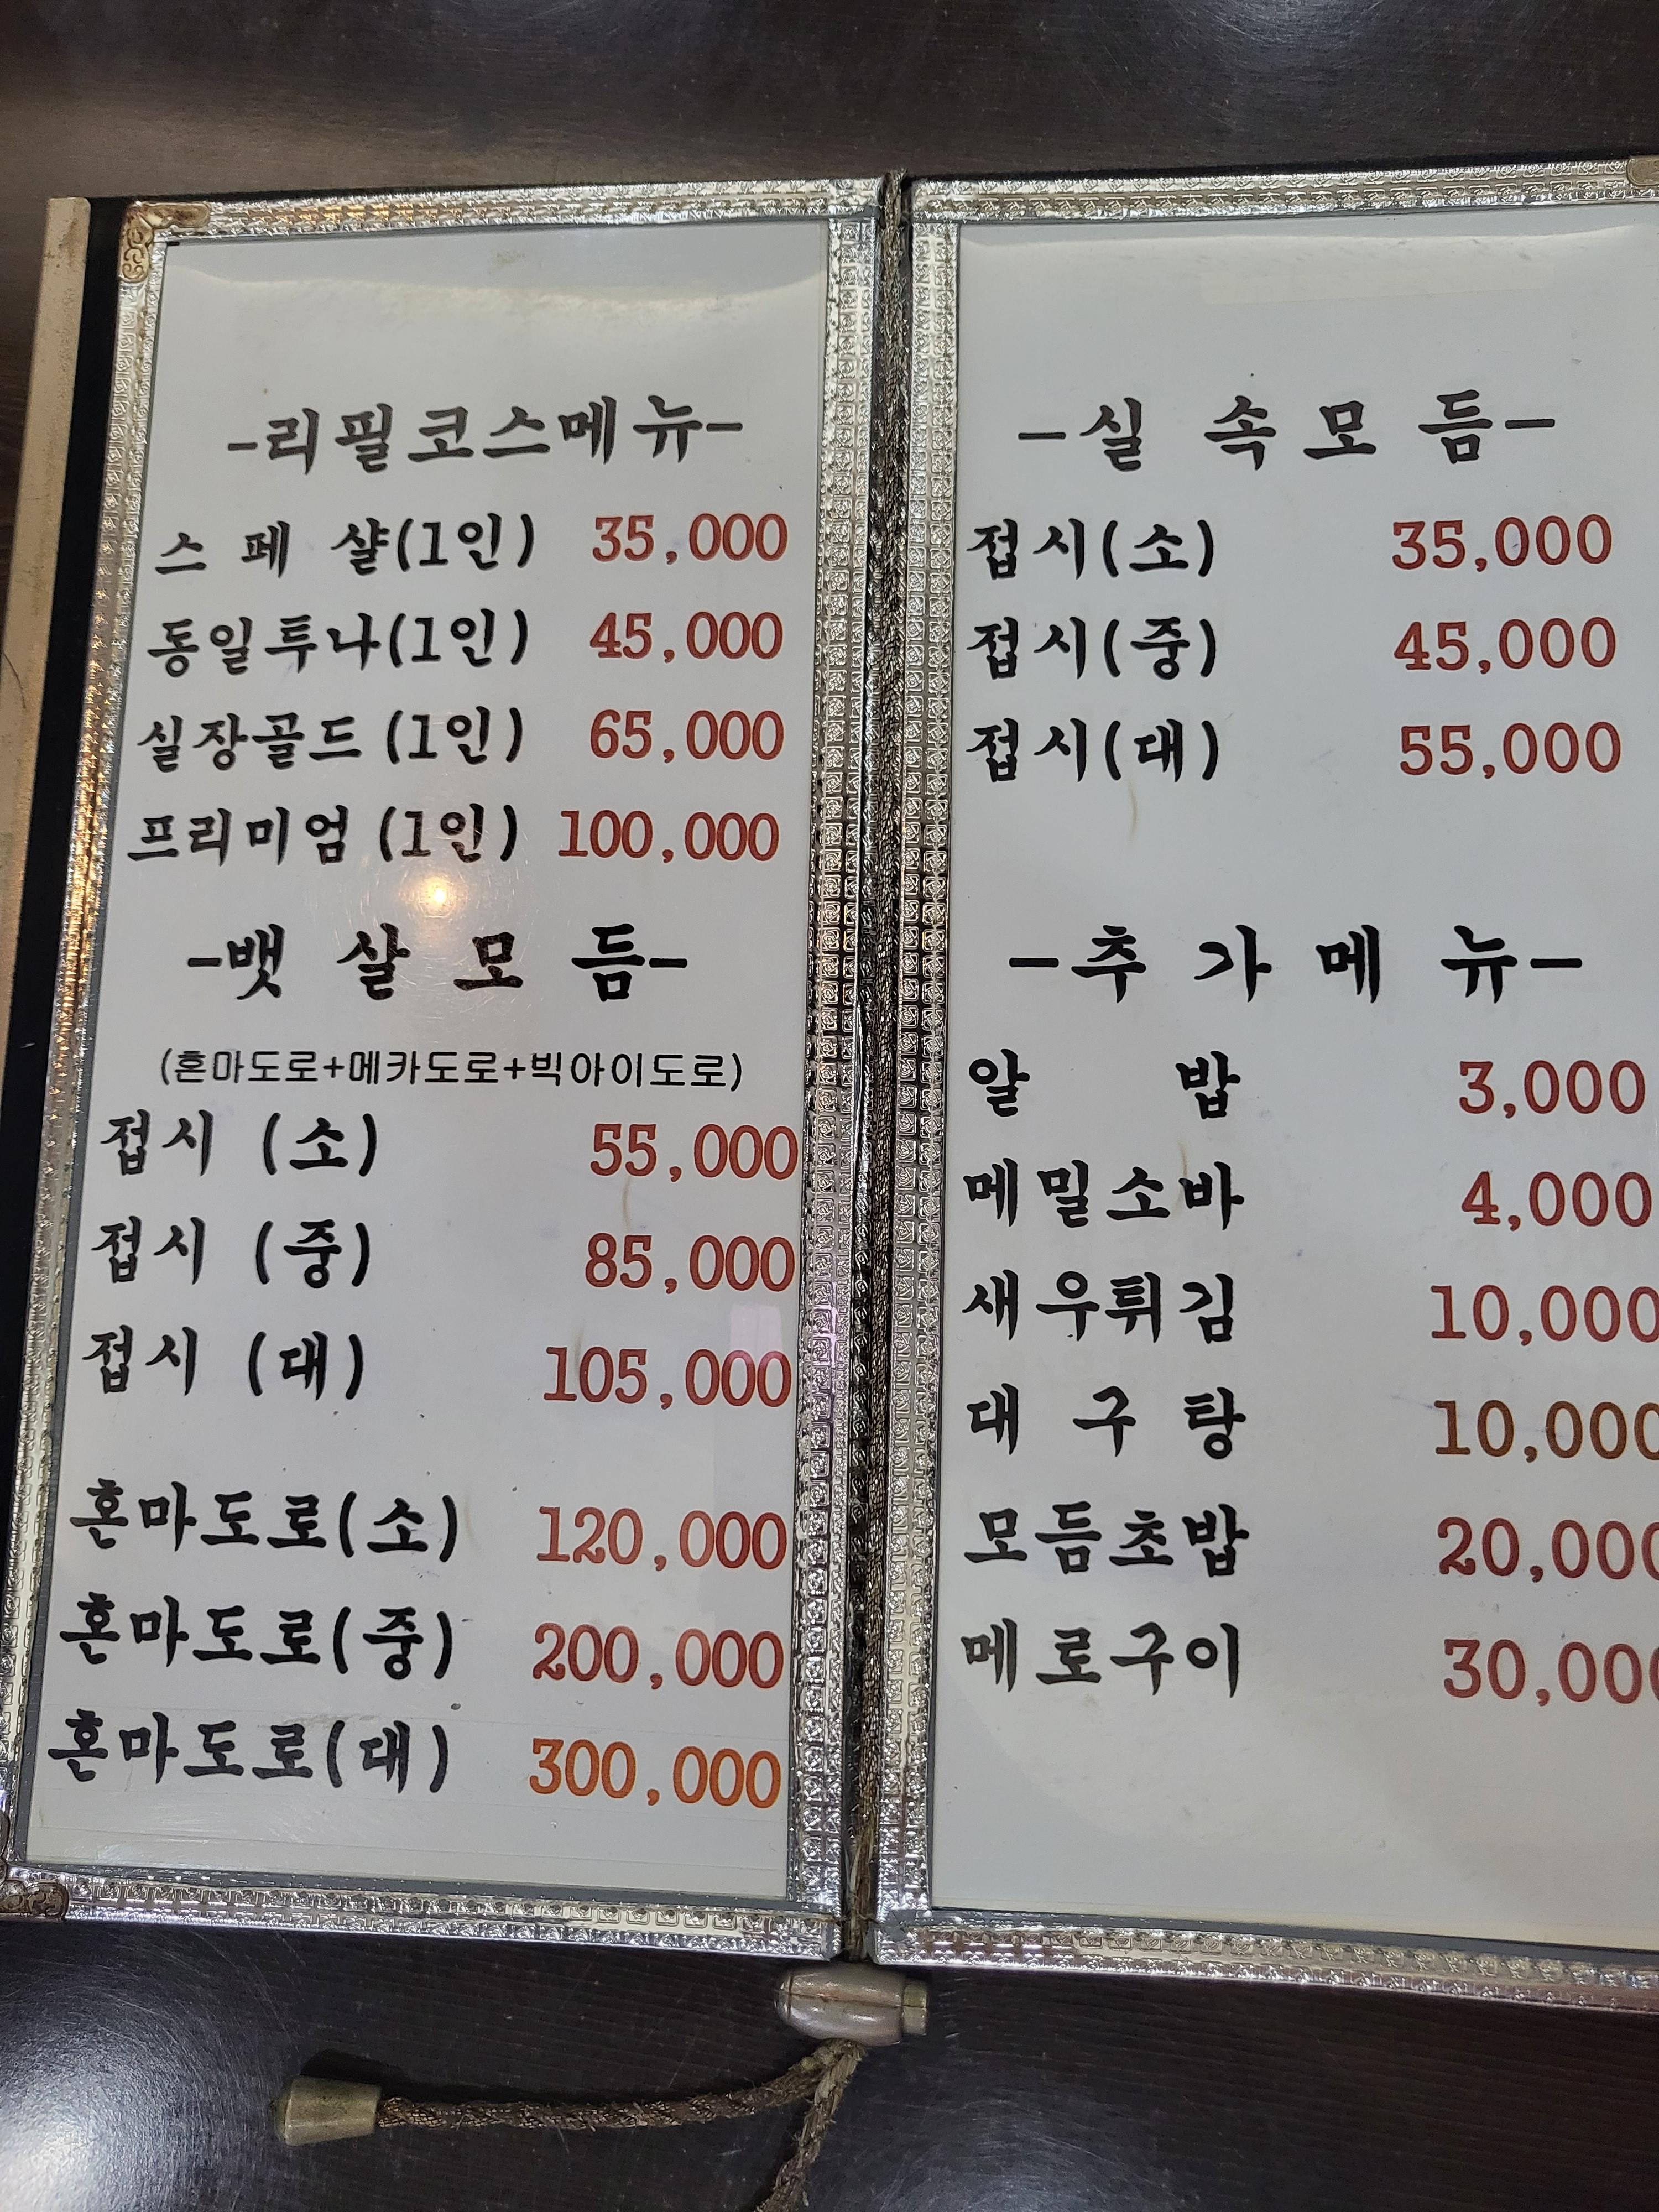 -리필코스메뉴-
스 페 샬(1인) 35,000
동일투나(1인) 45,000
실장골드(1인) 65,000
프리미엄 (1인) 100,000
-뱃 살 모 듬-
(혼마도로+메카도로+빅아이도로)
접시 (소) 55,000
접시 (중) 85,000
접시 (대) 105,000
혼마도로(소) 120,000
혼마도로(중) 200,000
혼마도로(대) 300,000
-실 속 모 듬-
접시(소) 35,000
접시(중) 45,000
접시(대) 55,000
-추 가 메 뉴-
알 밥 3,000
메밀소바 4,000
새우튀김 10,000
대 구 탕 10,000
모듬초밥 20,000
메로구이 30,000